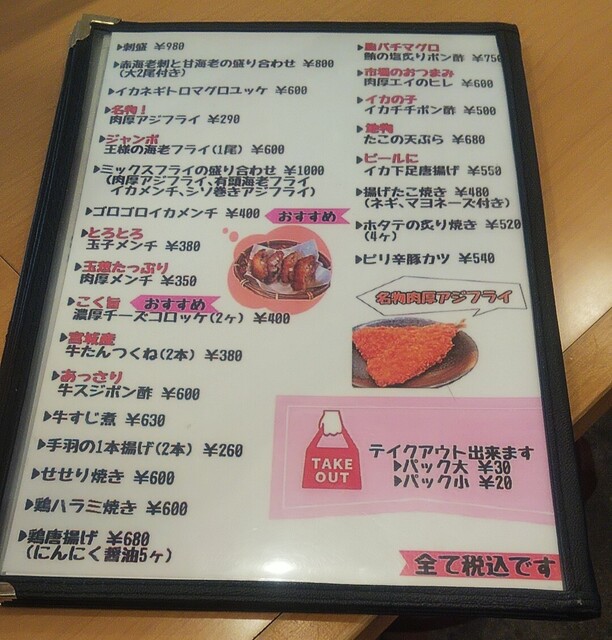 ▶刺盛 ¥980
▶赤海老刺と甘海老の盛り合わせ ¥800
(大2尾付き)
▶イカネギトロマグロユッケ ¥600
▶名物!
肉厚アジフライ ¥290
▶ジャンボ
王様の海老フライ(1尾) ¥600
▶ミックスフライの盛り合わせ ¥1000
(肉厚アジフライ,有頭海老フライ
イカメンチ,シソ巻きアジフライ)
▶ゴロゴロイカメンチ ¥400 おすすめ
▶とろとろ
玉子メンチ ¥380
▶玉葱たっぷり
肉厚メンチ ¥350
▶こく旨 おすすめ
濃厚チーズコロッケ(2ヶ) ¥400
▶宮城産
牛たんつくね(2本) ¥380
▶あっさり
牛スジポン酢 ¥600
▶牛すじ煮 ¥630
▶手羽の1本揚げ(2本) ¥260
▶せせり焼き ¥600
▶鶏ハラミ焼き ¥600
▶鶏唐揚げ ¥680
(にんにく醤油5ヶ)
▶バチマグロ
鮪の塩炙りポン酢 ¥750
▶市場のおつまみ
肉厚エイのヒレ ¥600
▶イカの子
イカチチポン酢 ¥500
▶地物
たこの天ぷら ¥680
▶ビールに
イカ下足唐揚げ ¥550
▶揚げたこ焼き ¥480
(ネギ、マヨネーズ付き)
▶ホタテの炙り焼き ¥520
(4ヶ)
▶ピリ辛豚カツ ¥540
名物肉厚アジフライ
TAKE
OUT
テイクアウト出来ます
▶パック大 ¥30
▶パック小 ¥20
全て税込です